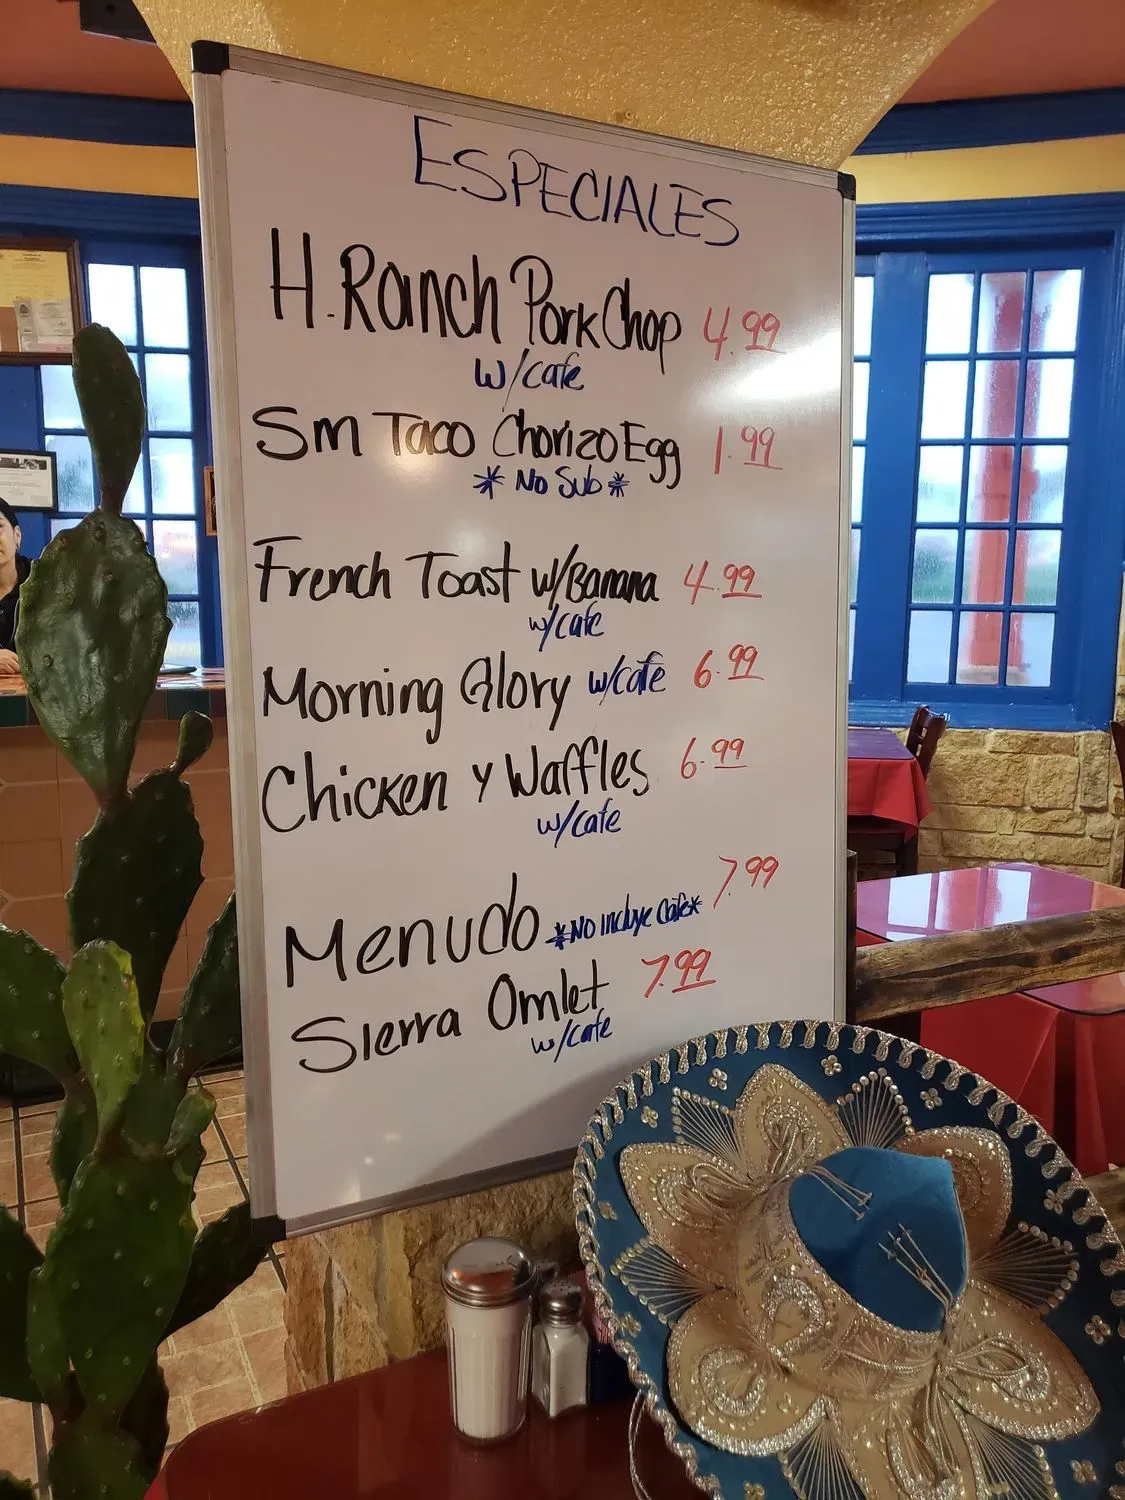 ESPECIALES
H. Ranch Pork Chop 4.99
w/cafe
Sm Taco Chorizo Egg 1.99
* No Sub *
French Toast w/Banana 4.99
w/cafe
Morning Glory w/cafe 6.99
Chicken y Waffles 6.99
w/cafe
Menudo *No incluye Cafe* 7.99
Sierra Omlet 7.99
w/cafe